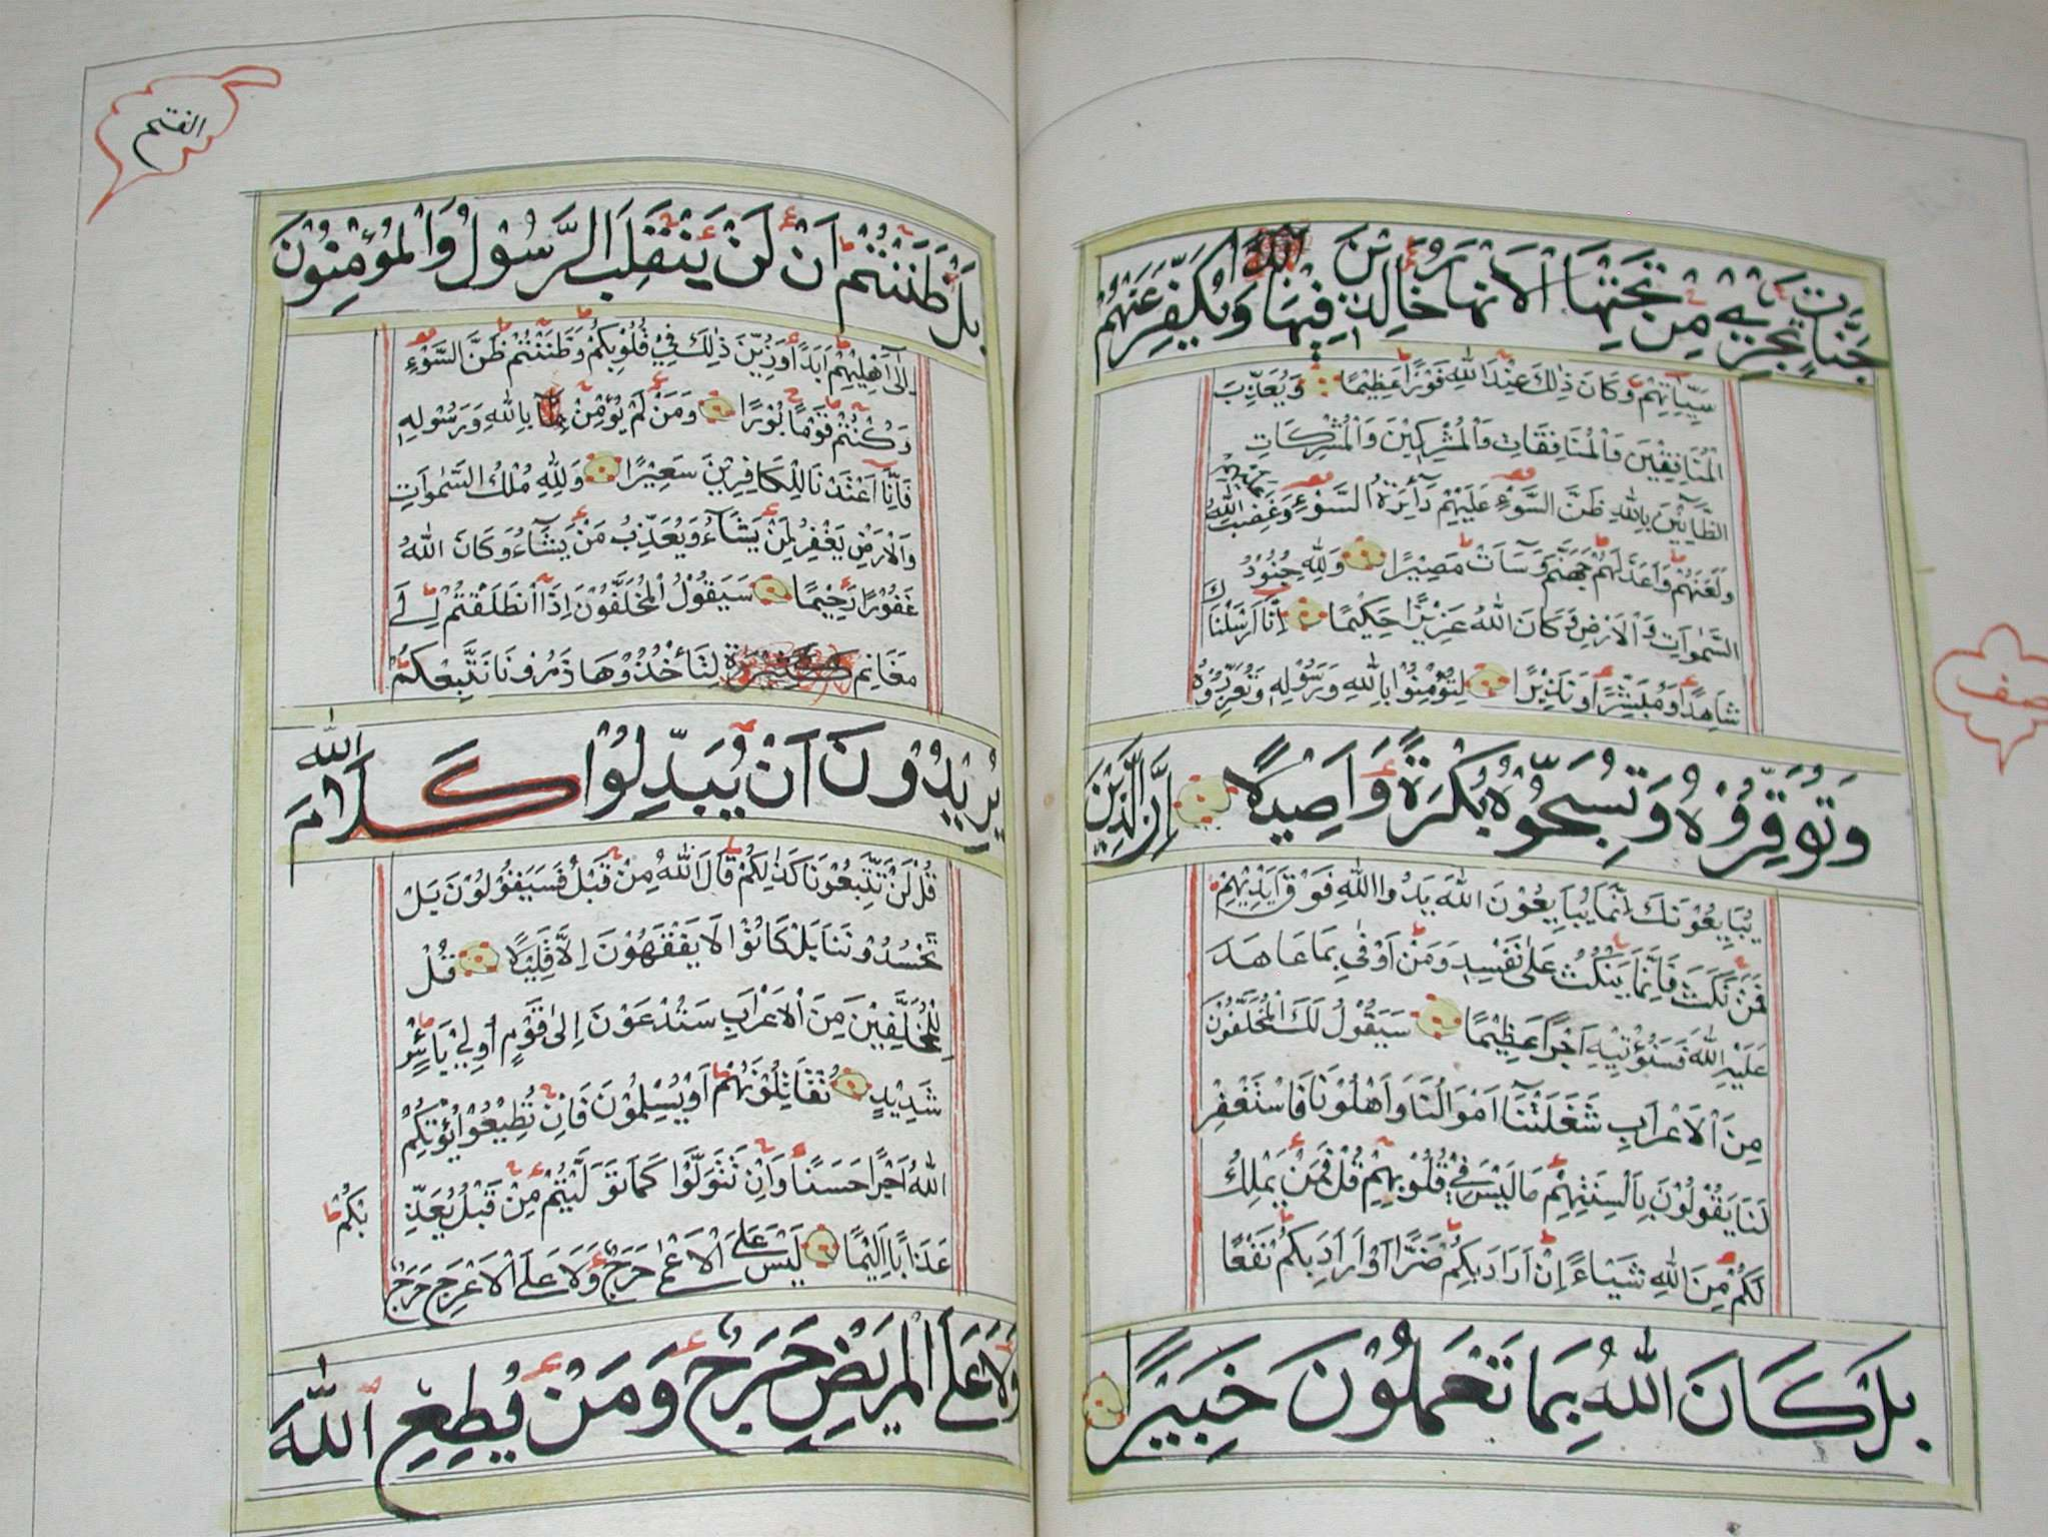 جَنَّاتٍ تَجْرِي مِنْ تَحْتِهَا الْاَنْهَارُ خَالِدِينَ فِيهَا وَيُكَفِّرَ عَنْهُمْ
سَيِّاٰتِهِمْ وَكَانَ ذٰلِكَ عِنْدَ اللّٰهِ فَوْزًا عَظِيْمًا وَيُعَذِّبَ
الْمُنَافِقِيْنَ وَالْمُنَافِقَاتِ وَالْمُشْرِكِيْنَ وَالْمُشْرِكَاتِ
الظَّآنِّيْنَ بِاللّٰهِ ظَنَّ السَّوْءِ عَلَيْهِمْ دَآئِرَةُ السَّوْءِ وَغَضِبَ اللّٰهُ عَلَيْهِمْ
وَلَعَنَهُمْ وَاَعَدَّ لَهُمْ جَهَنَّمَ وَسَآءَتْ مَصِيْرًا وَلِلّٰهِ جُنُوْدُ
السَّمٰوَاتِ وَالْاَرْضِ وَكَانَ اللّٰهُ عَزِيْزًا حَكِيْمًا اِنَّا اَرْسَلْنَاكَ
شَاهِدًا وَمُبَشِّرًا وَنَذِيْرًا لِتُؤْمِنُوْا بِاللّٰهِ وَرَسُوْلِهٖ وَتُعَزِّرُوْهُ
وَتُوَقِّرُوْهُ وَتُسَبِّحُوْهُ بُكْرَةً وَاَصِيْلًا اِنَّ الَّذِيْنَ
يُبَايِعُوْنَكَ اِنَّمَا يُبَايِعُوْنَ اللّٰهَ يَدُ اللّٰهِ فَوْقَ اَيْدِيْهِمْ
فَمَنْ نَكَثَ فَاِنَّمَا يَنْكُثُ عَلٰى نَفْسِهٖ وَمَنْ اَوْفٰى بِمَا عَاهَدَ
عَلَيْهِ اللّٰهَ فَسَنُؤْتِيْهِ اَجْرًا عَظِيْمًا سَيَقُوْلُ لَكَ الْمُخَلَّفُوْنَ
مِنَ الْاَعْرَابِ شَغَلَتْنَا اَمْوَالُنَا وَاَهْلُوْنَا فَاسْتَغْفِرْ
لَنَا يَقُوْلُوْنَ بِاَلْسِنَتِهِمْ مَا لَيْسَ فِيْ قُلُوْبِهِمْ قُلْ فَمَنْ يَمْلِكُ
لَكُمْ مِنَ اللّٰهِ شَيْاءً اِنْ اَرَادَ بِكُمْ ضَرًّا اَوْ اَرَادَ بِكُمْ نَفْعًا
بَلْ كَانَ اللّٰهُ بِمَا تَعْمَلُوْنَ خَبِيْرًا
صف
الفتح
بَلْ ظَنَنْتُمْ اَنْ لَنْ يَنْقَلِبَ الرَّسُوْلُ وَالْمُؤْمِنُوْنَ
اِلٰى اَهْلِيْهِمْ اَبَدًا وَزُيِّنَ ذٰلِكَ فِيْ قُلُوْبِكُمْ وَظَنَنْتُمْ ظَنَّ السَّوْءِ
وَكُنْتُمْ قَوْمًا بُوْرًا وَمَنْ لَمْ يُؤْمِنْ بِاللّٰهِ وَرَسُوْلِهٖ
فَاِنَّا اَعْتَدْنَا لِلْكَافِرِيْنَ سَعِيْرًا وَلِلّٰهِ مُلْكُ السَّمٰوَاتِ
وَالْاَرْضِ يَغْفِرُ لِمَنْ يَشَآءُ وَيُعَذِّبُ مَنْ يَشَآءُ وَكَانَ اللّٰهُ
غَفُوْرًا رَحِيْمًا سَيَقُوْلُ الْمُخَلَّفُوْنَ اِذَا انْطَلَقْتُمْ اِلٰى
مَغَانِمَ لِتَاْخُذُوْهَا ذَرُوْنَا نَتَّبِعْكُمْ
يُرِيْدُوْنَ اَنْ يُبَدِّلُوْا كَلَامَ اللّٰهِ
قُلْ لَنْ تَتَّبِعُوْنَا كَذٰلِكُمْ قَالَ اللّٰهُ مِنْ قَبْلُ فَسَيَقُوْلُوْنَ بَلْ
تَحْسُدُوْنَنَا بَلْ كَانُوْا لَا يَفْقَهُوْنَ اِلَّا قَلِيْلًا قُلْ
لِلْمُخَلَّفِيْنَ مِنَ الْاَعْرَابِ سَتُدْعَوْنَ اِلٰى قَوْمٍ اُولِيْ بَاْسٍ
شَدِيْدٍ تُقَاتِلُوْنَهُمْ اَوْ يُسْلِمُوْنَ فَاِنْ تُطِيْعُوْا يُؤْتِكُمُ
اللّٰهُ اَجْرًا حَسَنًا وَاِنْ تَتَوَلَّوْا كَمَا تَوَلَّيْتُمْ مِنْ قَبْلُ يُعَذِّ
بْكُمْ
عَذَابًا اَلِيْمًا لَيْسَ عَلَى الْاَعْمٰى حَرَجٌ وَلَا عَلَى الْاَعْرَجِ حَرَجٌ
وَلَا عَلَى الْمَرِيْضِ حَرَجٌ وَمَنْ يُطِعِ اللّٰهَ